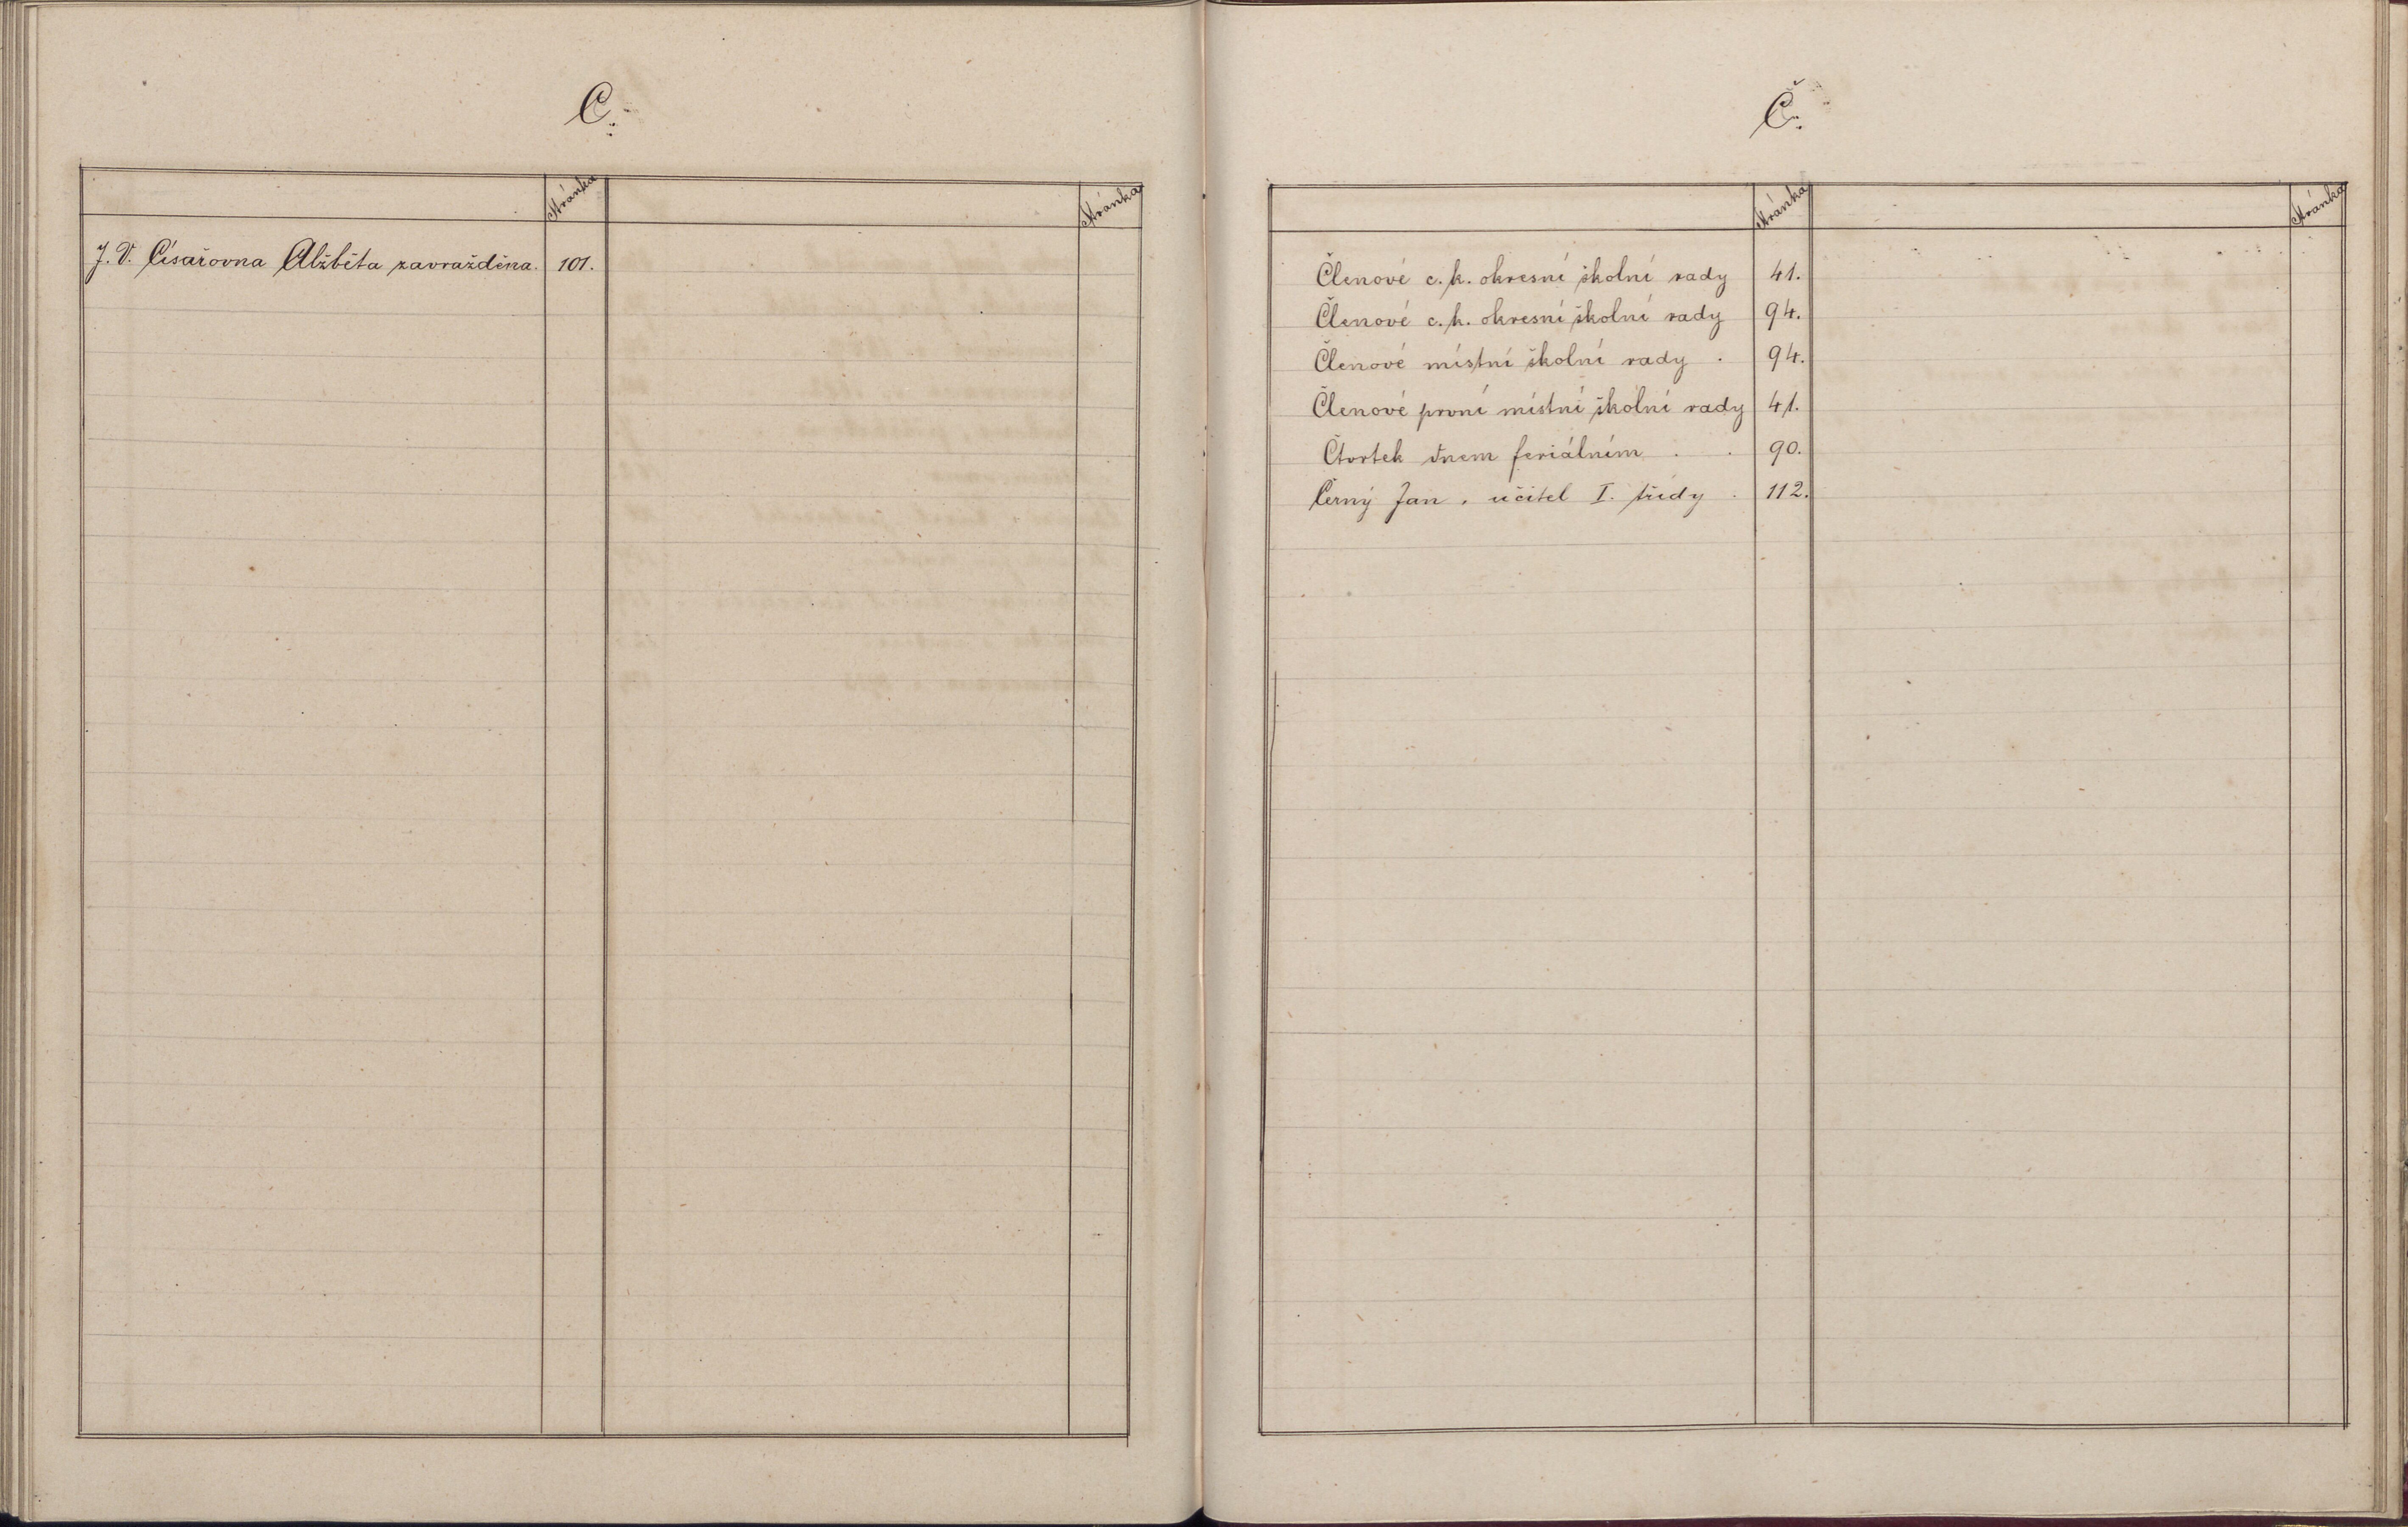 C.
Stránka
Stránka
J. V. Císařovna Alžběta zavražděna. 101.
Č.
Stránka
Stránka
Členové c. k. okresní školní rady 41.
Členové c. k. okresní školní rady 94.
Členové místní školní rady . 94.
Členové první místní školní rady 41.
Čtvrtek dnem feriálním . . 90.
Černý Jan, učitel I. třídy . 112.